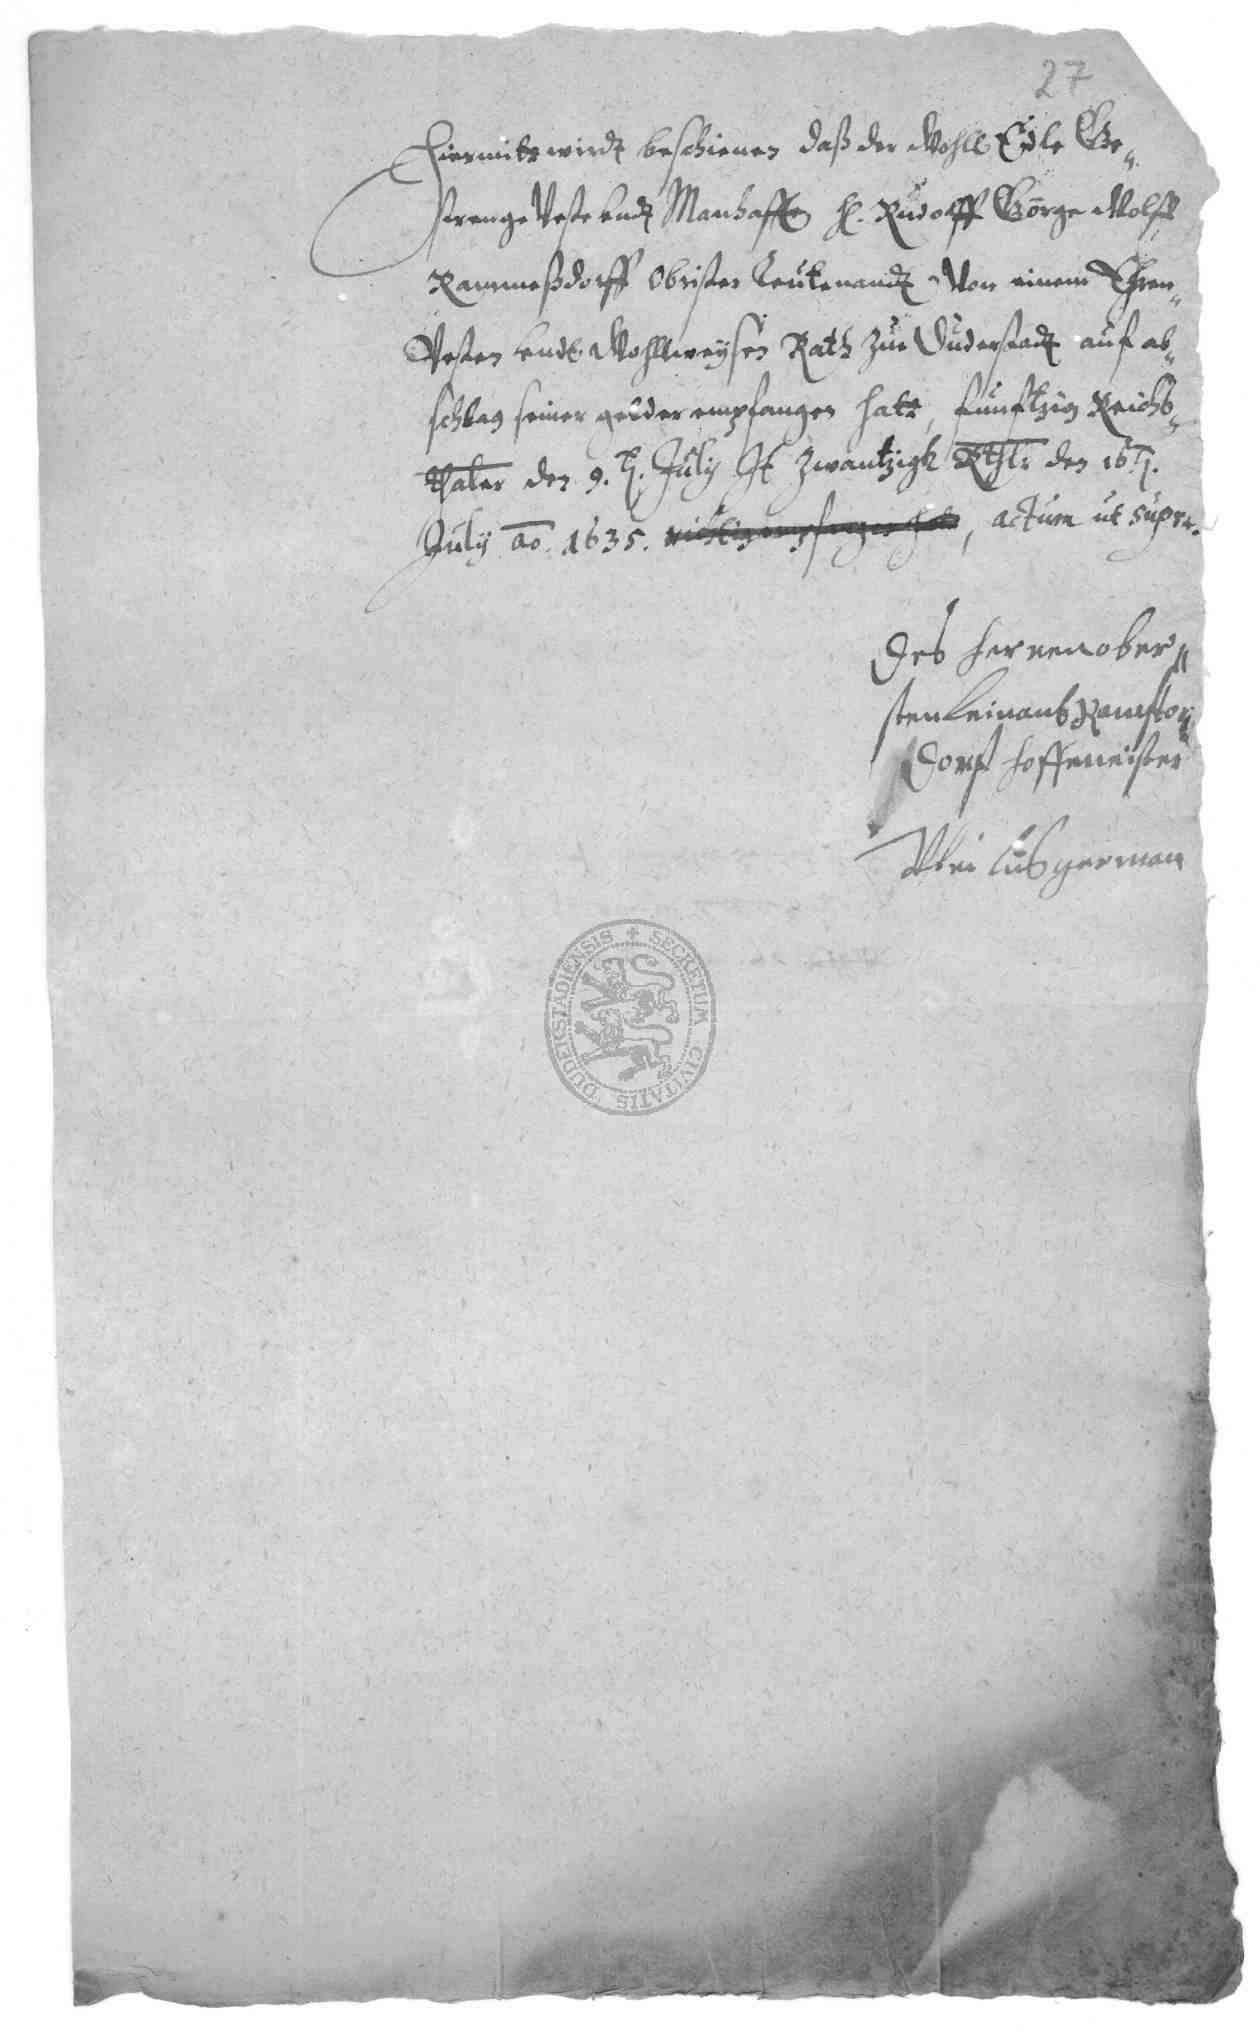 27
Hiermitt wirdt beschienen daß der Wohll Edle Ge„
strenge Veste undt Manhaffte H. Rudolff Görge Wolff
Rammeßdorff Obrister Leutenandt Von einem Ehren„
Vesten undt Wohllweysen Rath zue Duderstadt auf ab„
schlag seiner gelder empfangen hatt, funftzig Reichs„
thaler den 9. July It zwantzigk Rthlr den 16
July ao 1635. richtig empfangen hatt, actum ut supra.
Des herren ober„
sten Leinant Ramstor„
Dorf hoffmeister
SECRETUM CIVITATIS DUDERSTADIENSIS